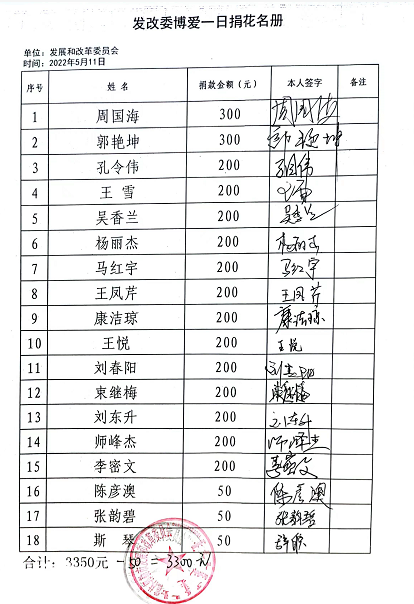 发改委博爱一日捐花名册
单位：发展和改革委员会
时间：2022年5月11日
序号 姓名 捐款金额（元） 本人签字 备注
1 周国海 300 周国海
2 郭艳坤 300 郭艳坤
3 孔令伟 200 孔令伟
4 王雪 200 王雪
5 吴香兰 200 吴香兰
6 杨丽杰 200 杨丽杰
7 马红宇 200 马红宇
8 王凤芹 200 王凤芹
9 康洁琼 200 康洁琼
10 王悦 200 王悦
11 刘春阳 200 刘春阳
12 束继梅 200 束继梅
13 刘东升 200 刘东升
14 师峰杰 200 师峰杰
15 李密文 200 李密文
16 陈彦澳 50 陈彦澳
17 张韵碧 50 张韵碧
18 斯琴 50 斯琴
合计：3350元 -50 = 3300元